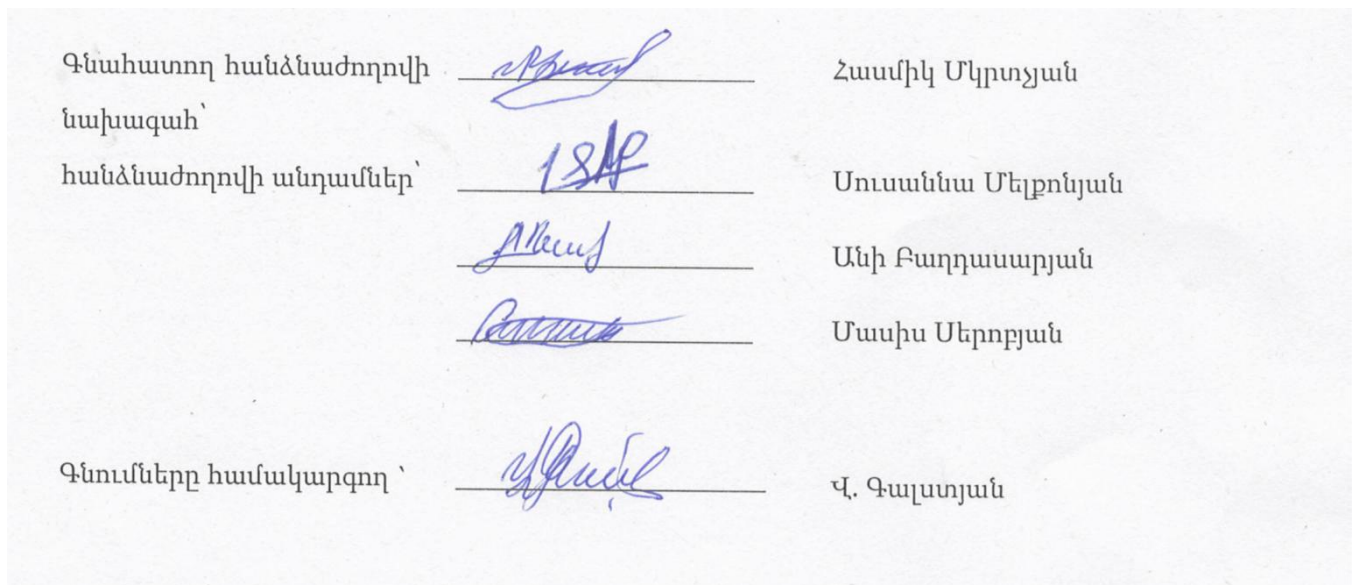 Գնահատող հանձնաժողովի Հասմիկ Մկրտչյան
նախագահ՝
հանձնաժողովի անդամներ՝ Սուսաննա Մելքոնյան
Անի Բաղդասարյան
Մասիս Սերոբյան
Գնումները համակարգող ՝ Վ. Գալստյան